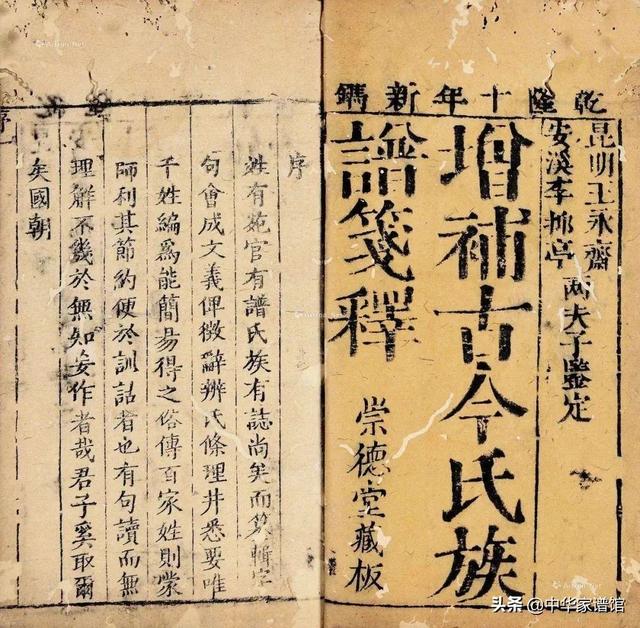 乾隆十年新鐫
昆明王永齋
安溪李郁亭
兩夫子鑒定
增補古今氏族
譜箋釋
崇德堂藏板
序
姓有苑官有譜氏族有誌尚矣而纂輯字
句會成文義俾徵辭辨氏條理井悉要唯
千姓編爲能簡易得之俗傳百家姓則蒙
師利其節約便於訓詁者也有句讀而無
理解不幾於無知妄作者哉君子奚取爾
矣國朝
頭条 @中华家谱馆